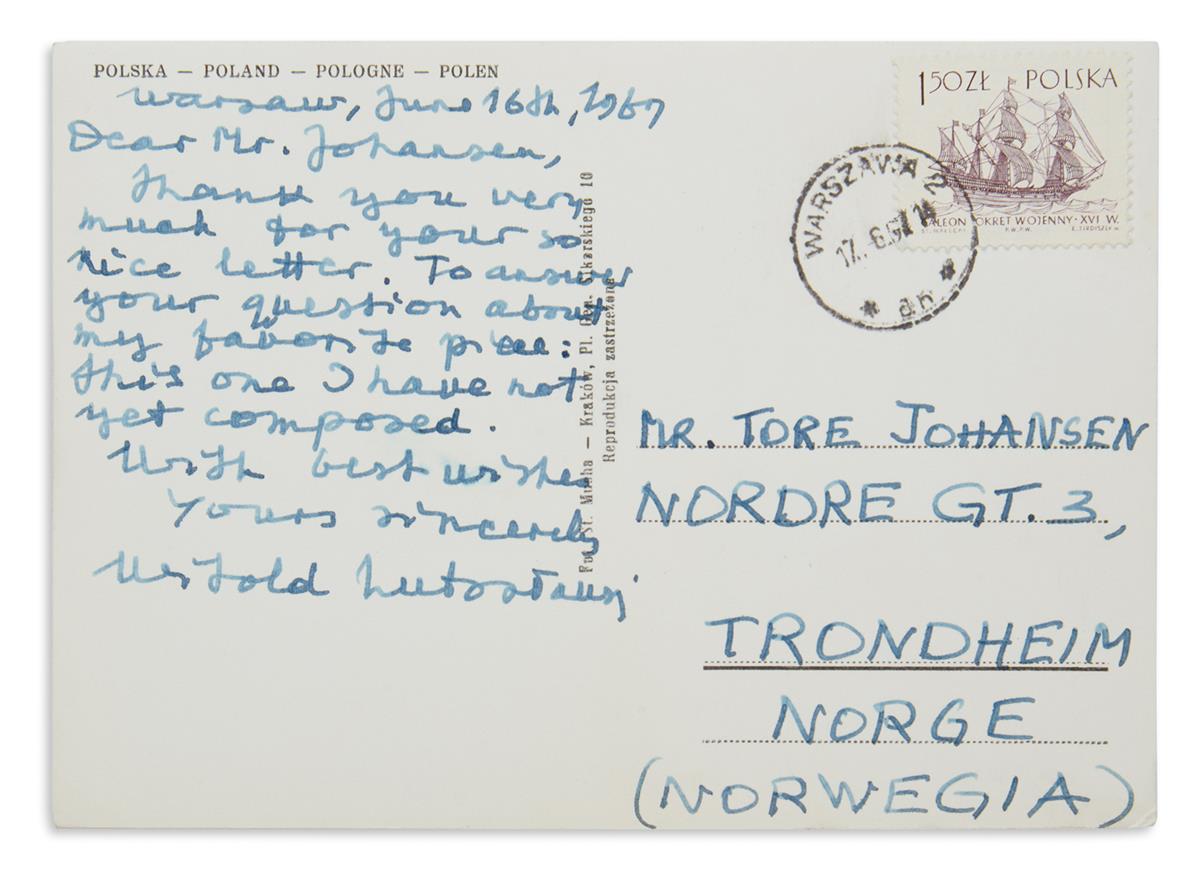 POLSKA — POLAND — POLOGNE — POLEN
Warsaw, June 16th, 1967
Dear Mr. Johansen,
Thank you very
much for your so
nice letter. To answer
your question about
my favorite piece:
this one I have not
yet composed.
With best wishes
Yours sincerely
Witold Lutosławski
Fot. St. Mucha — Kraków, Pl. Gen. Sikorskiego 10
Reprodukcja zastrzeżona
1,50ZŁ POLSKA
GALEON OKRĘT WOJENNY · XVI W.
ST. MAŁECKI P.W.P.W.
WARSZAWA 2
17. 6.67 14
* ah *
MR. TORE JOHANSEN
NORDRE GT. 3,
TRONDHEIM
NORGE
(NORWEGIA)